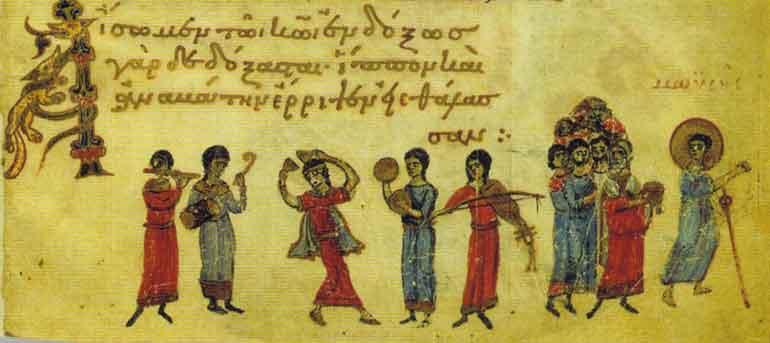 Ἄισωμεν τῶι κ̅ω̅ι ἐνδόξως
γὰρ δεδόξασται· ἵππον καὶ
ἀναβάτην ἔρριψεν εἰς θάλασ
σαν :·
μωϋσῆς